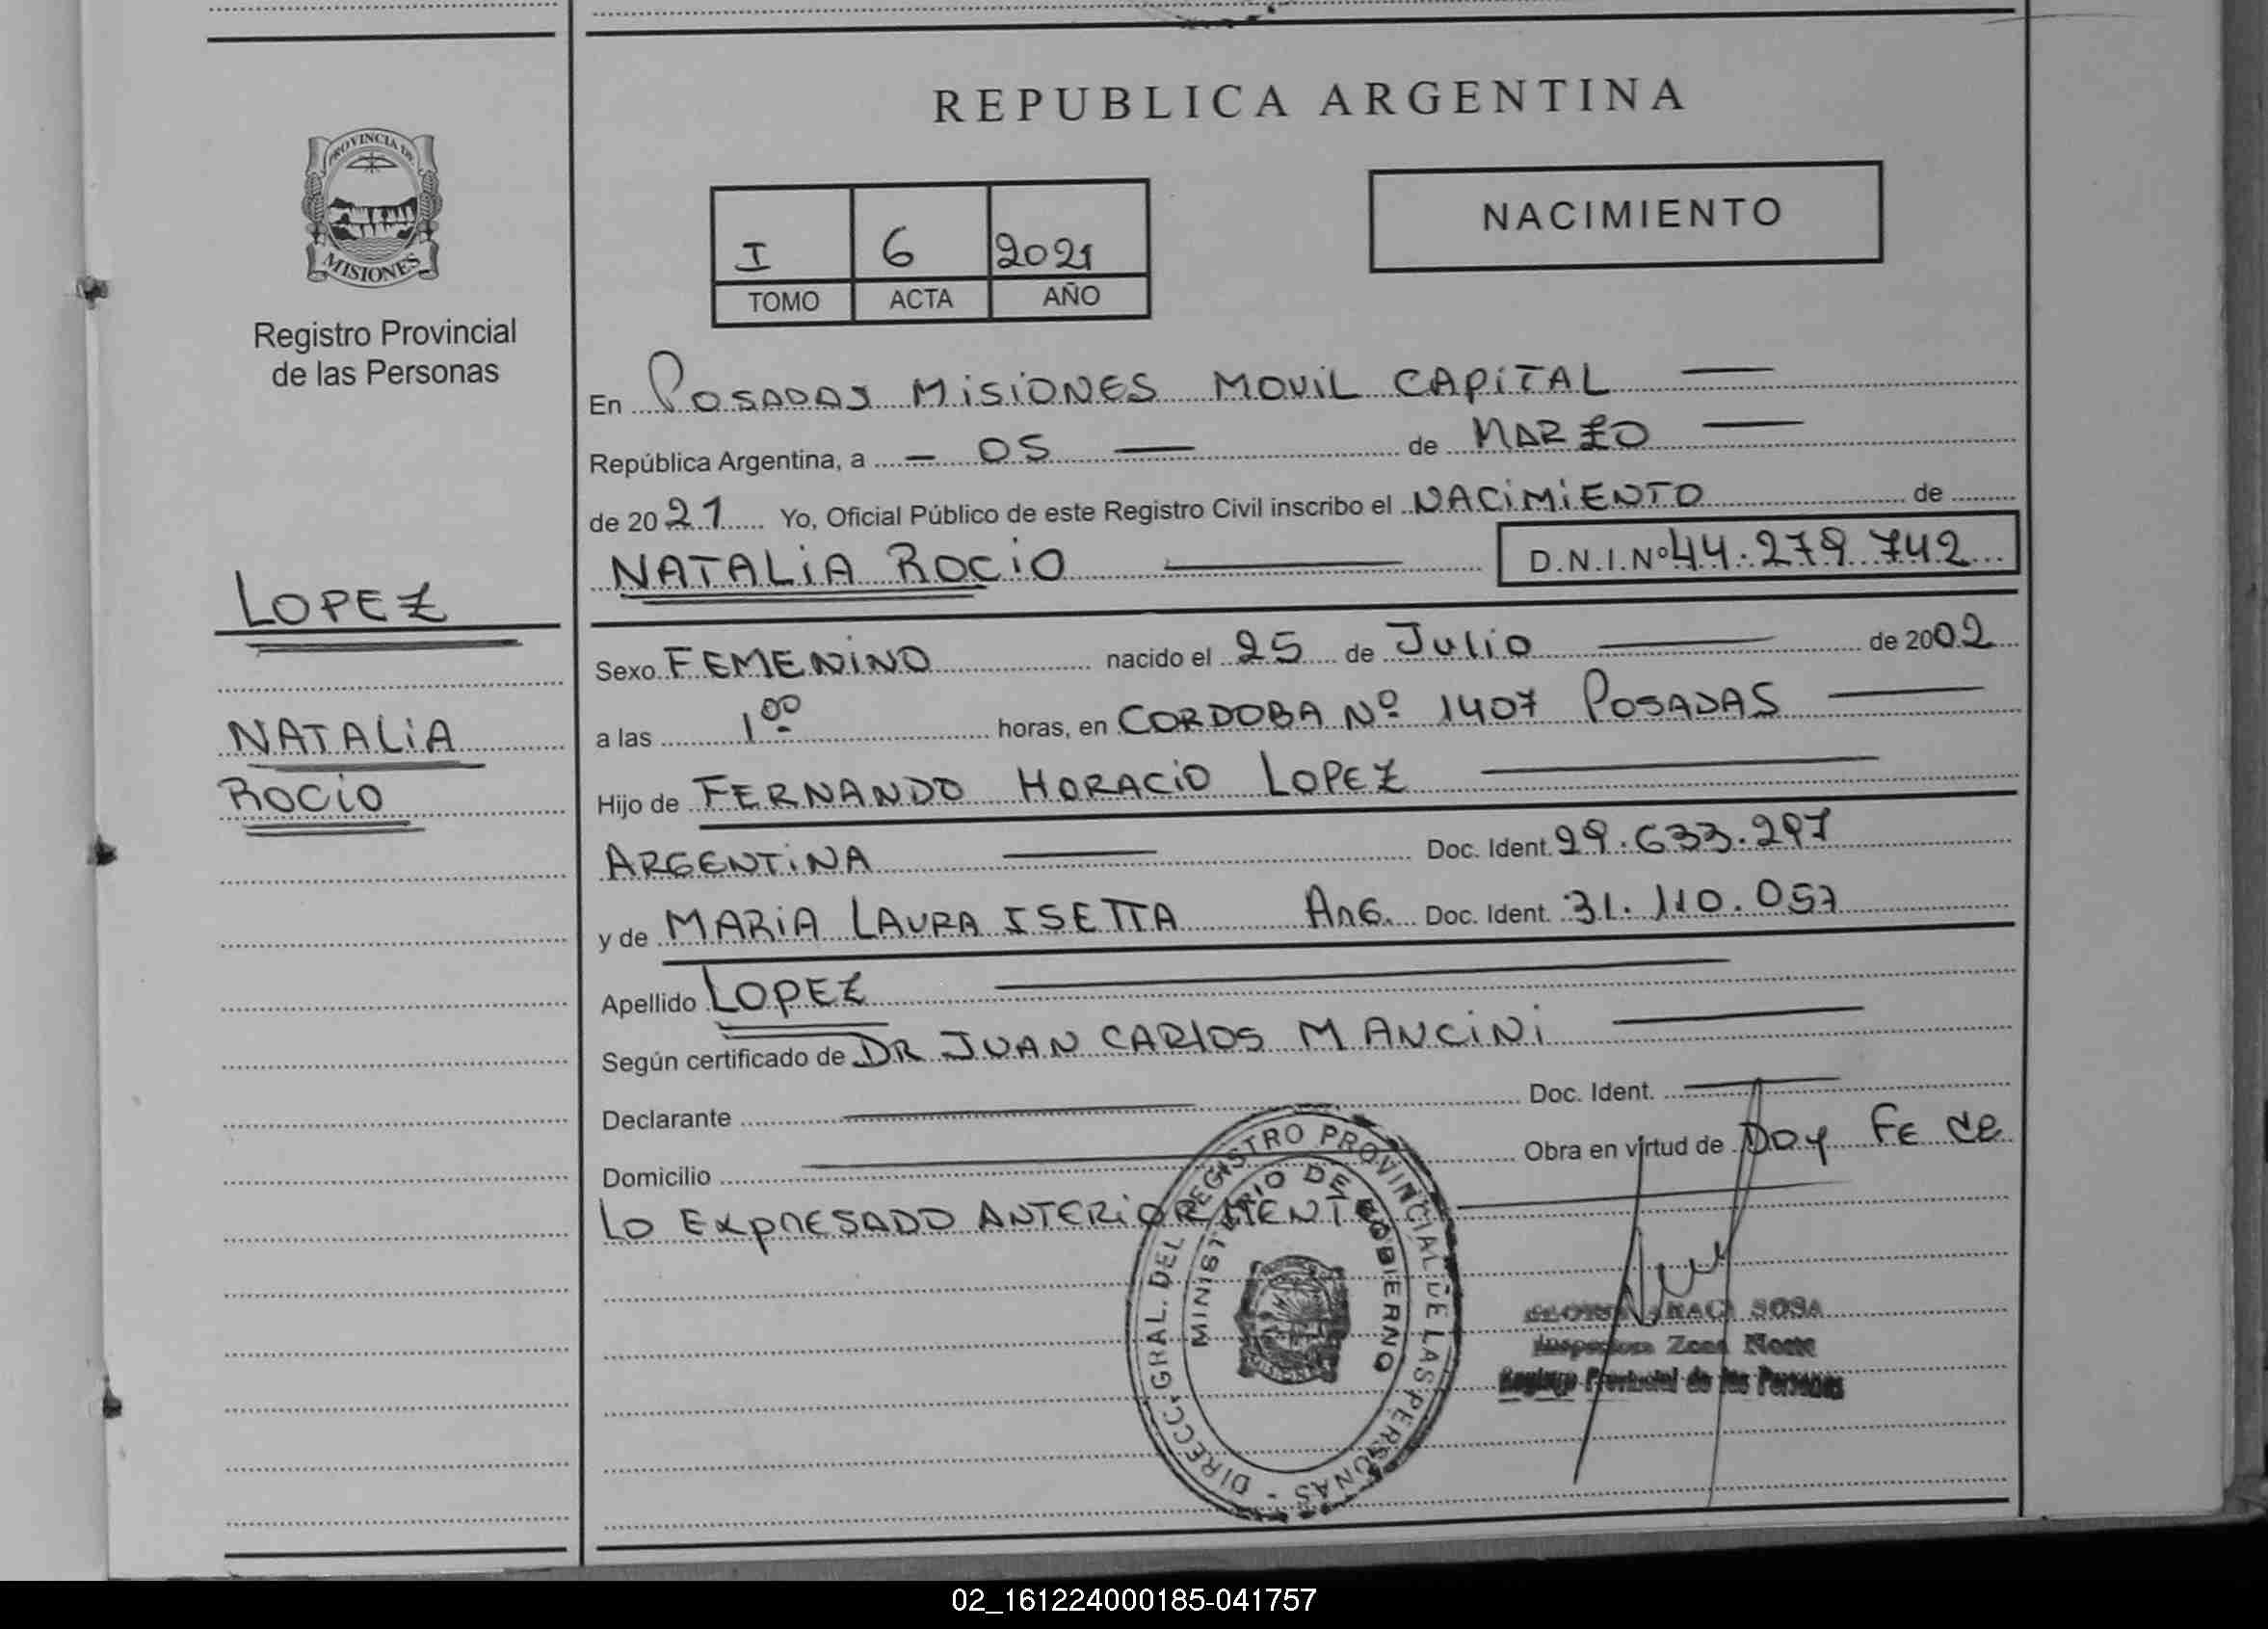 REPUBLICA ARGENTINA
PROVINCIA DE
MISIONES
Registro Provincial
de las Personas
NACIMIENTO
I 6 2021
TOMO ACTA AÑO
En POSADAS MISIONES MOVIL CAPITAL
República Argentina, a 05 de MARZO
de 2021 Yo, Oficial Público de este Registro Civil inscribo el NACIMIENTO de
NATALIA ROCIO D.N.I.Nº 44.279.742
LOPEZ
NATALIA
ROCIO
Sexo FEMENINO nacido el 25 de JULIO de 2002
a las 1 00 horas, en CORDOBA Nº 1407 POSADAS
Hijo de FERNANDO HORACIO LOPEZ
ARGENTINA Doc. Ident. 29.633.297
y de MARIA LAURA ISETTA ARG. Doc. Ident. 31.110.057
Apellido LOPEZ
Según certificado de DR JUAN CARLOS MANCINI
Declarante Doc. Ident.
Domicilio Obra en virtud de Doy FE de
LO EXPRESADO ANTERIORMENTE
DIRECC. GRAL. DEL REGISTRO PROVINCIAL DE LAS PERSONAS -
MINISTERIO DE GOBIERNO
SOSA
Inspectora Zona Norte
Registro Provincial de las Personas
02_161224000185-041757